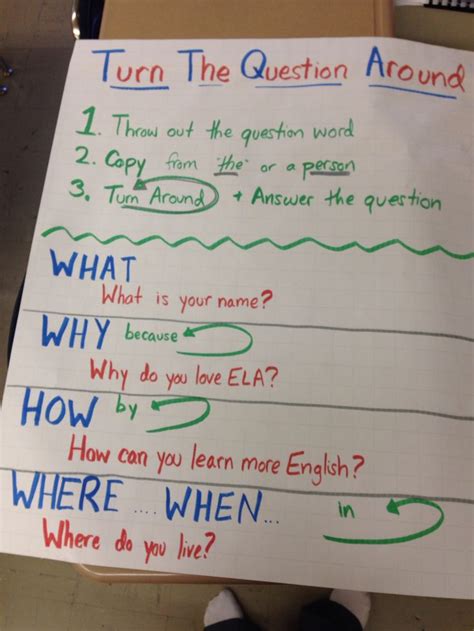 Turn The Question Around
1. Throw out the question word
2. Copy from "the" or a person
3. Turn Around + Answer the question
WHAT
What is your name?
WHY because
Why do you love ELA?
HOW by
How can you learn more English?
WHERE .... WHEN... in
Where do you live?